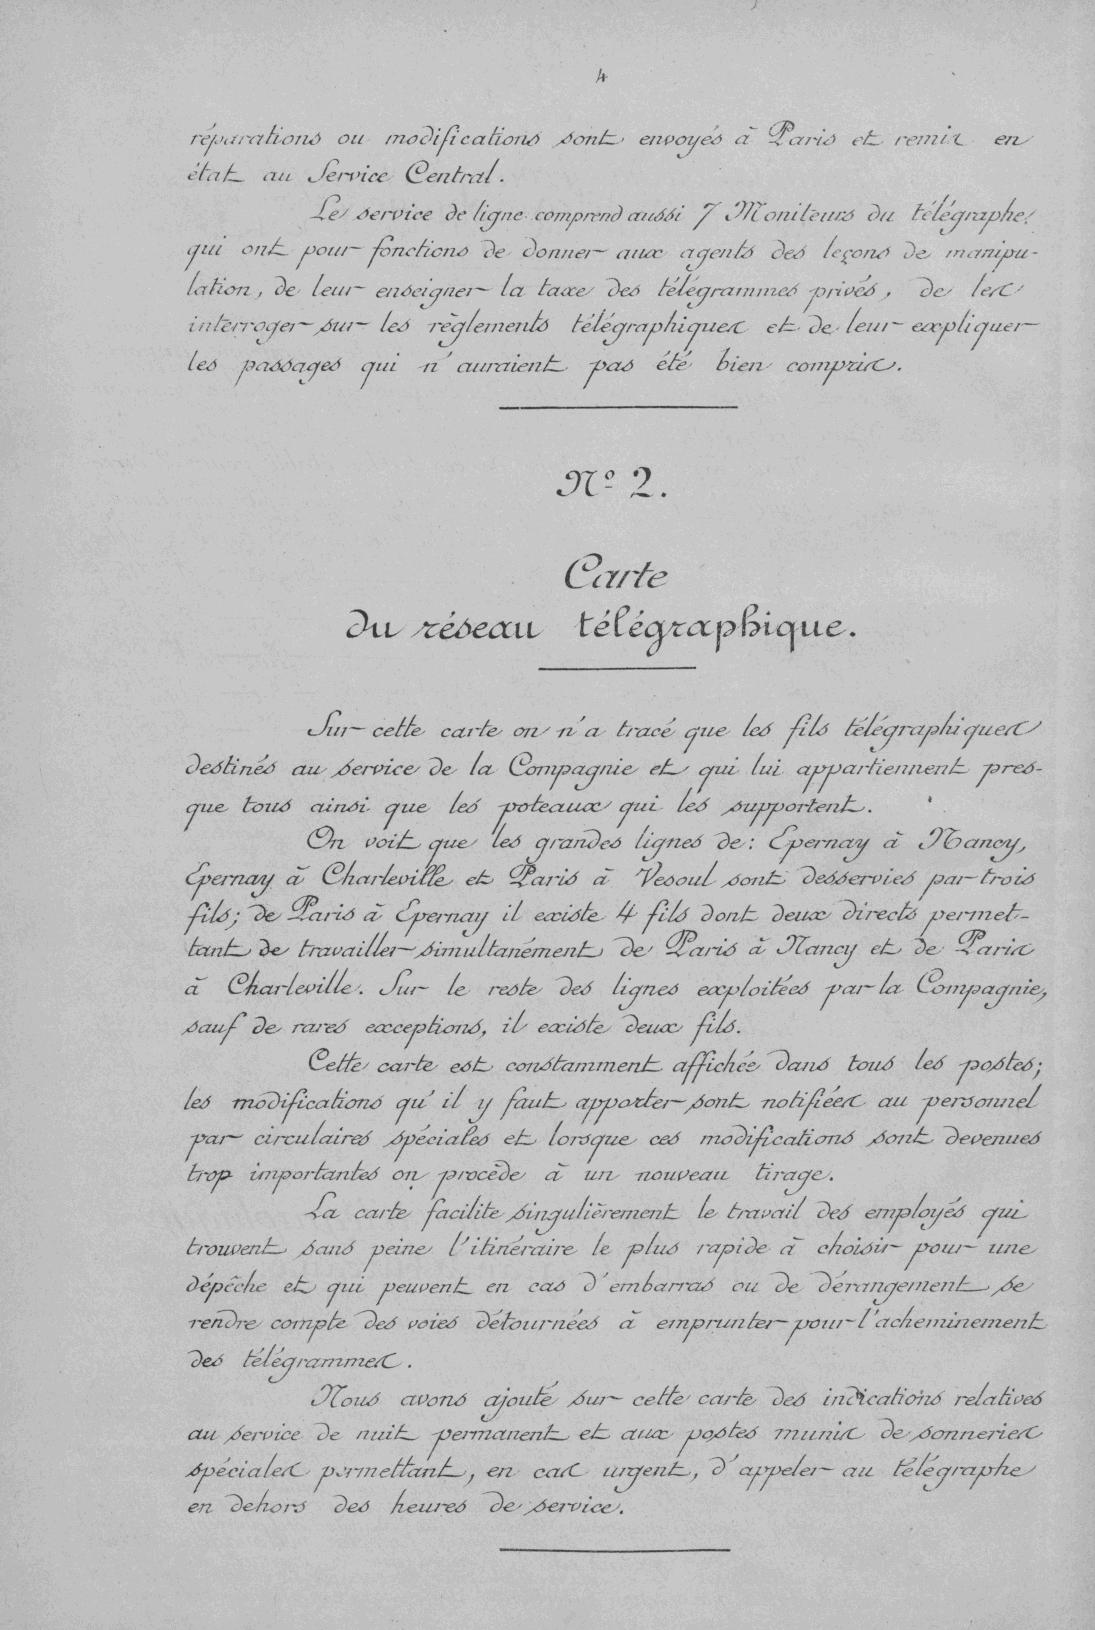 4
réparations ou modifications sont envoyés à Paris et remis en
état au Service Central.
Le service de ligne comprend aussi 7 Moniteurs du télégraphe
qui ont pour fonctions de donner aux agents des leçons de manipu-
lation, de leur enseigner la taxe des télégrammes privés, de les
interroger sur les règlements télégraphiques et de leur expliquer
les passages qui n'auraient pas été bien compris.
Nº 2.
Carte
du réseau télégraphique.
Sur cette carte on n'a tracé que les fils télégraphiques
destinés au service de la Compagnie et qui lui appartiennent pres-
que tous ainsi que les poteaux qui les supportent.
On voit que les grandes lignes de: Epernay à Nancy,
Epernay à Charleville et Paris à Vesoul sont desservies par trois
fils; de Paris à Epernay il existe 4 fils dont deux directs permet-
tant de travailler simultanément de Paris à Nancy et de Paris
à Charleville. Sur le reste des lignes exploitées par la Compagnie,
sauf de rares exceptions, il existe deux fils.
Cette carte est constamment affichée dans tous les postes;
les modifications qu'il y faut apporter sont notifiées au personnel
par circulaires spéciales et lorsque ces modifications sont devenues
trop importantes on procède à un nouveau tirage.
La carte facilite singulièrement le travail des employés qui
trouvent sans peine l'itinéraire le plus rapide à choisir pour une
dépêche et qui peuvent en cas d'embarras ou de dérangement se
rendre compte des voies détournées à emprunter pour l'acheminement
des télégrammes.
Nous avons ajouté sur cette carte des indications relatives
au service de nuit permanent et aux postes munis de sonneries
spéciales permettant, en cas urgent, d'appeler au télégraphe
en dehors des heures de service.